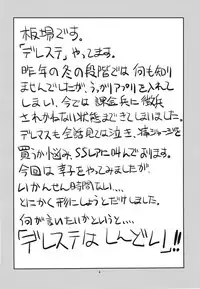 板場です。
「デレステ」やってます。
昨年の冬の段階では何も知り
ませんでしたが、うっかりアプリを入れて
しまい、今では課金兵に徴兵
されかねない状態まできてしまいました。
デレマスも全話見ては泣き、
買うか悩み、SSレアに叫んでおります。
今回は幸子をやってみましたが
いかんせん時間ない‥‥
とにかく形にしようとだけしました。
何が言いたいかというと‥‥
「デレステはしんどい」!!